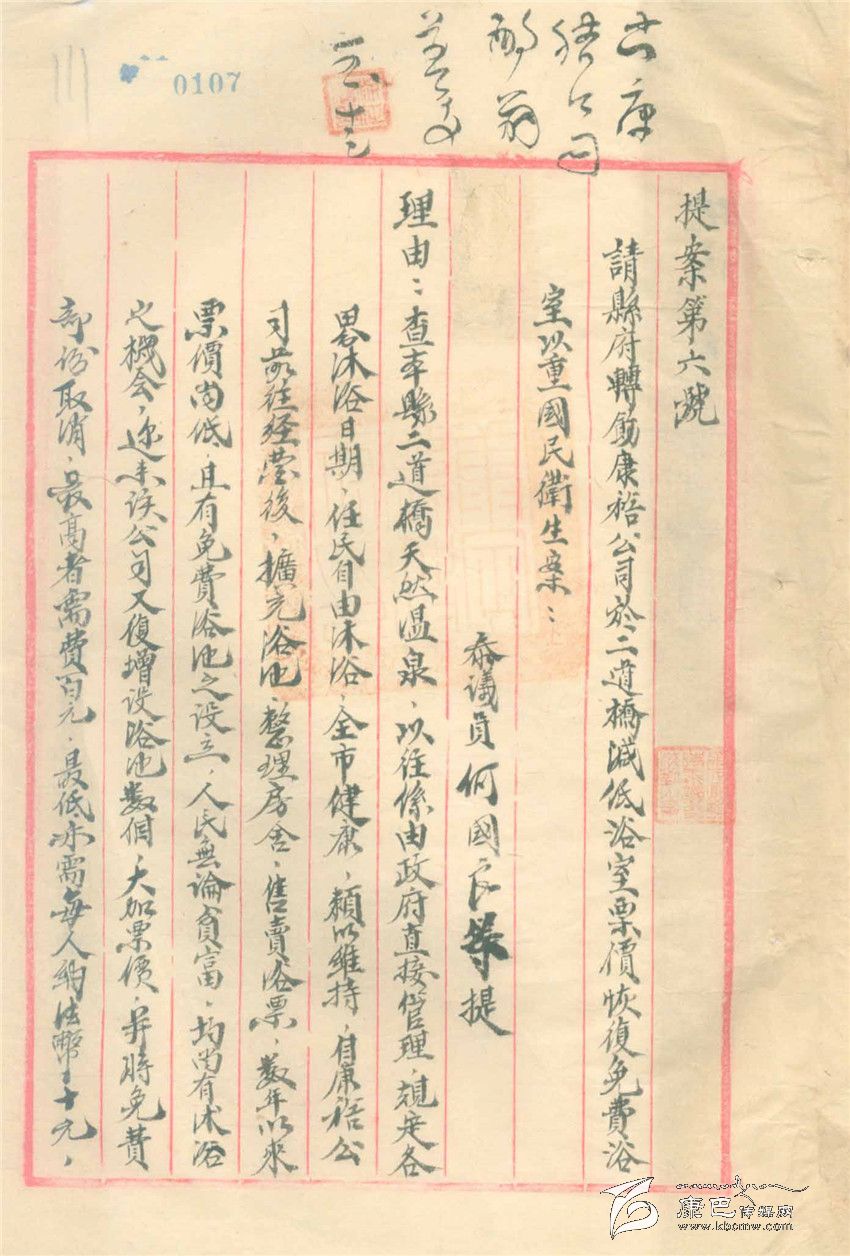 0107
提案第六號
請縣府轉飭康裕公司於二道橋減低浴室票價恢復免費浴
室以重國民衛生案:
參議員何國良等提
理由:查本縣二道橋天然温泉,以往係由政府直接管理,規定各
沐浴日期,任民自由沐浴,全市健康,賴以維持,自康裕公
司前往经營後,擴充浴池,整理房舍,售賣浴票,數年以來
票價尚低,且有免費浴池之设立,人民無論貧富,均尚有沐浴
之機会,近来该公司又復增设浴池數個,大加票價,并將免費
部份取消,最高者需費百元,最低亦需每人納法幣十元,
康巴传媒网
www.kbcmw.com